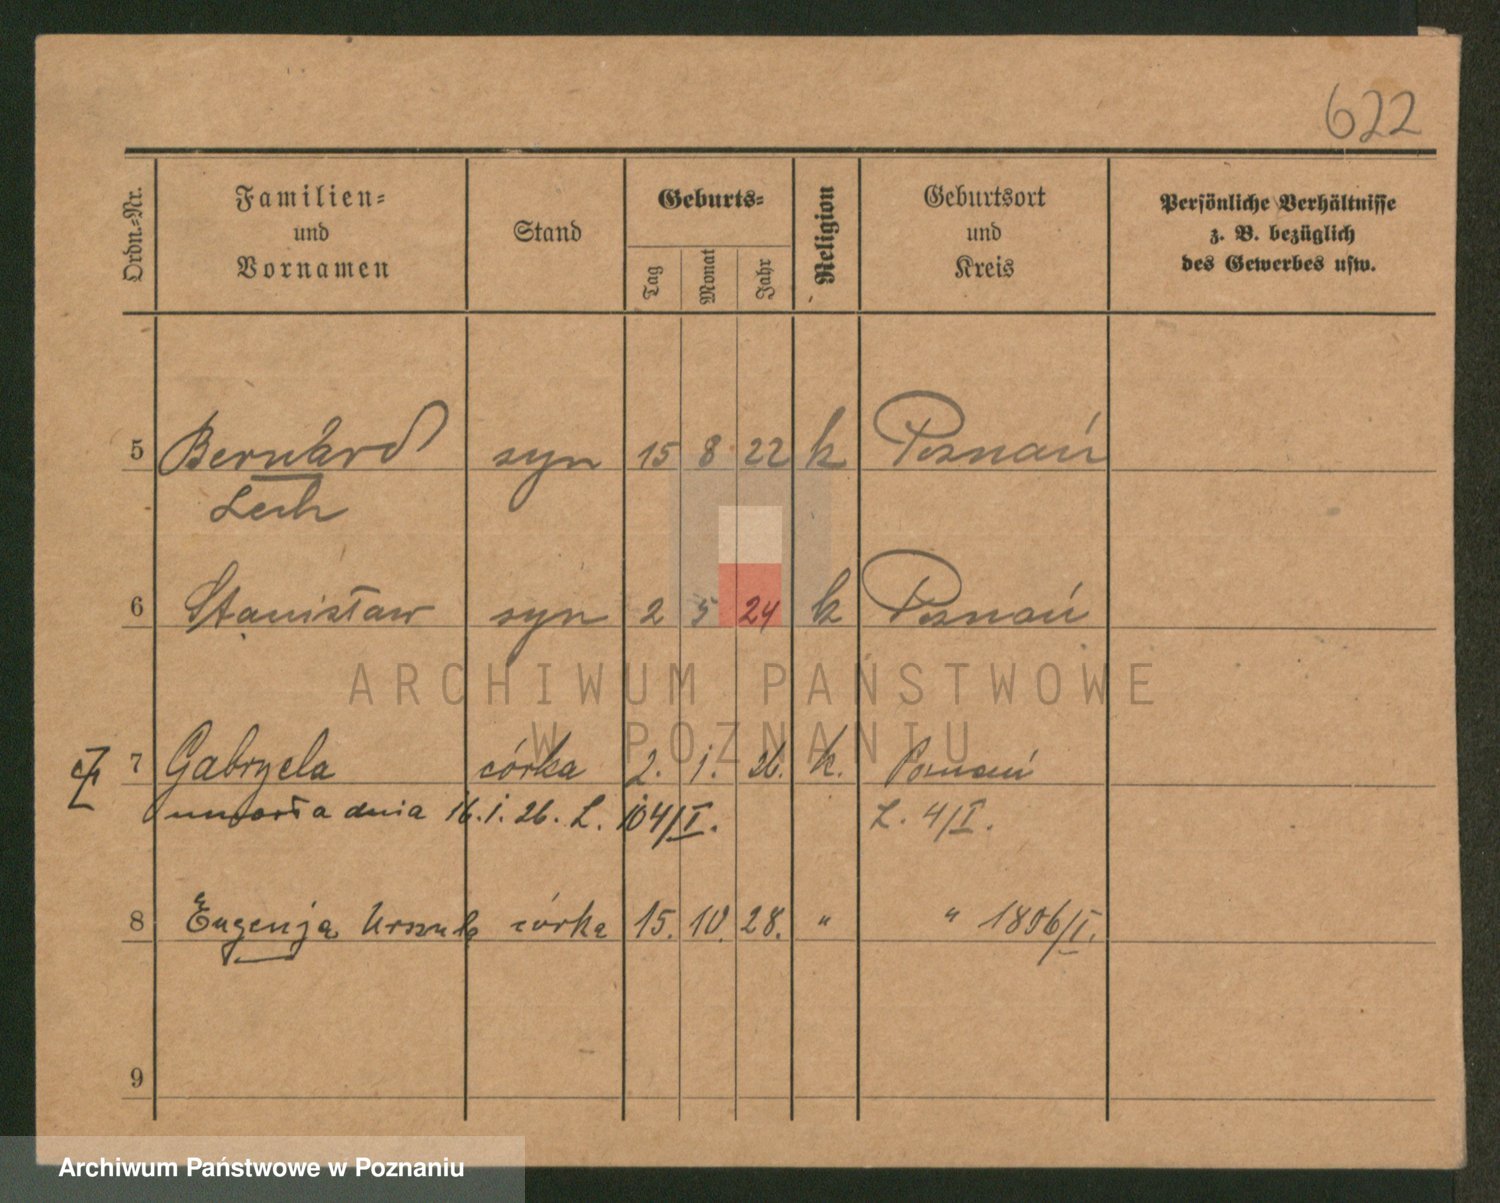 622
Ordn.-Nr.
Familien-
und
Vornamen
Stand
Geburts-
Tag
Monat
Jahr
Religion
Geburtsort
und
Kreis
Persönliche Verhältnisse
z. B. bezüglich
des Gewerbes usw.
5 Bernard syn 15 8 22 k Poznań
Lech
6 Stanisław syn 2 5 24 k Poznań
ARCHIWUM PAŃSTWOWE
W POZNANIU
7 Gabryela córka 2. 1. 26. k. Poznań
umarła dnia 16.1.26. L. 104/I. L. 4/I.
8 Eugenja Urszula córka 15. 10. 28. " " 1806/I.
9
Archiwum Państwowe w Poznaniu